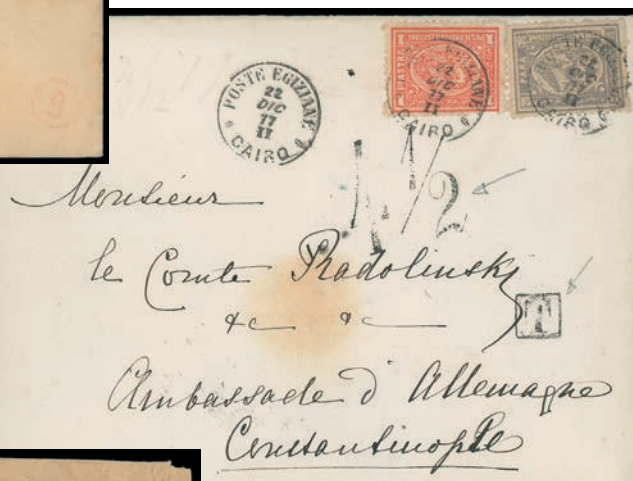 POSTE EGIZIANE
22
DIC
77
II
CAIRO
POSTE EGIZIANE
22
DIC
77
II
CAIRO
CAIRO
1 PIASTRA 1
4 1/2
Monsieur
le Comte Radolinsky
&c &c
T
Ambassade d'Allemagne
Constantinople